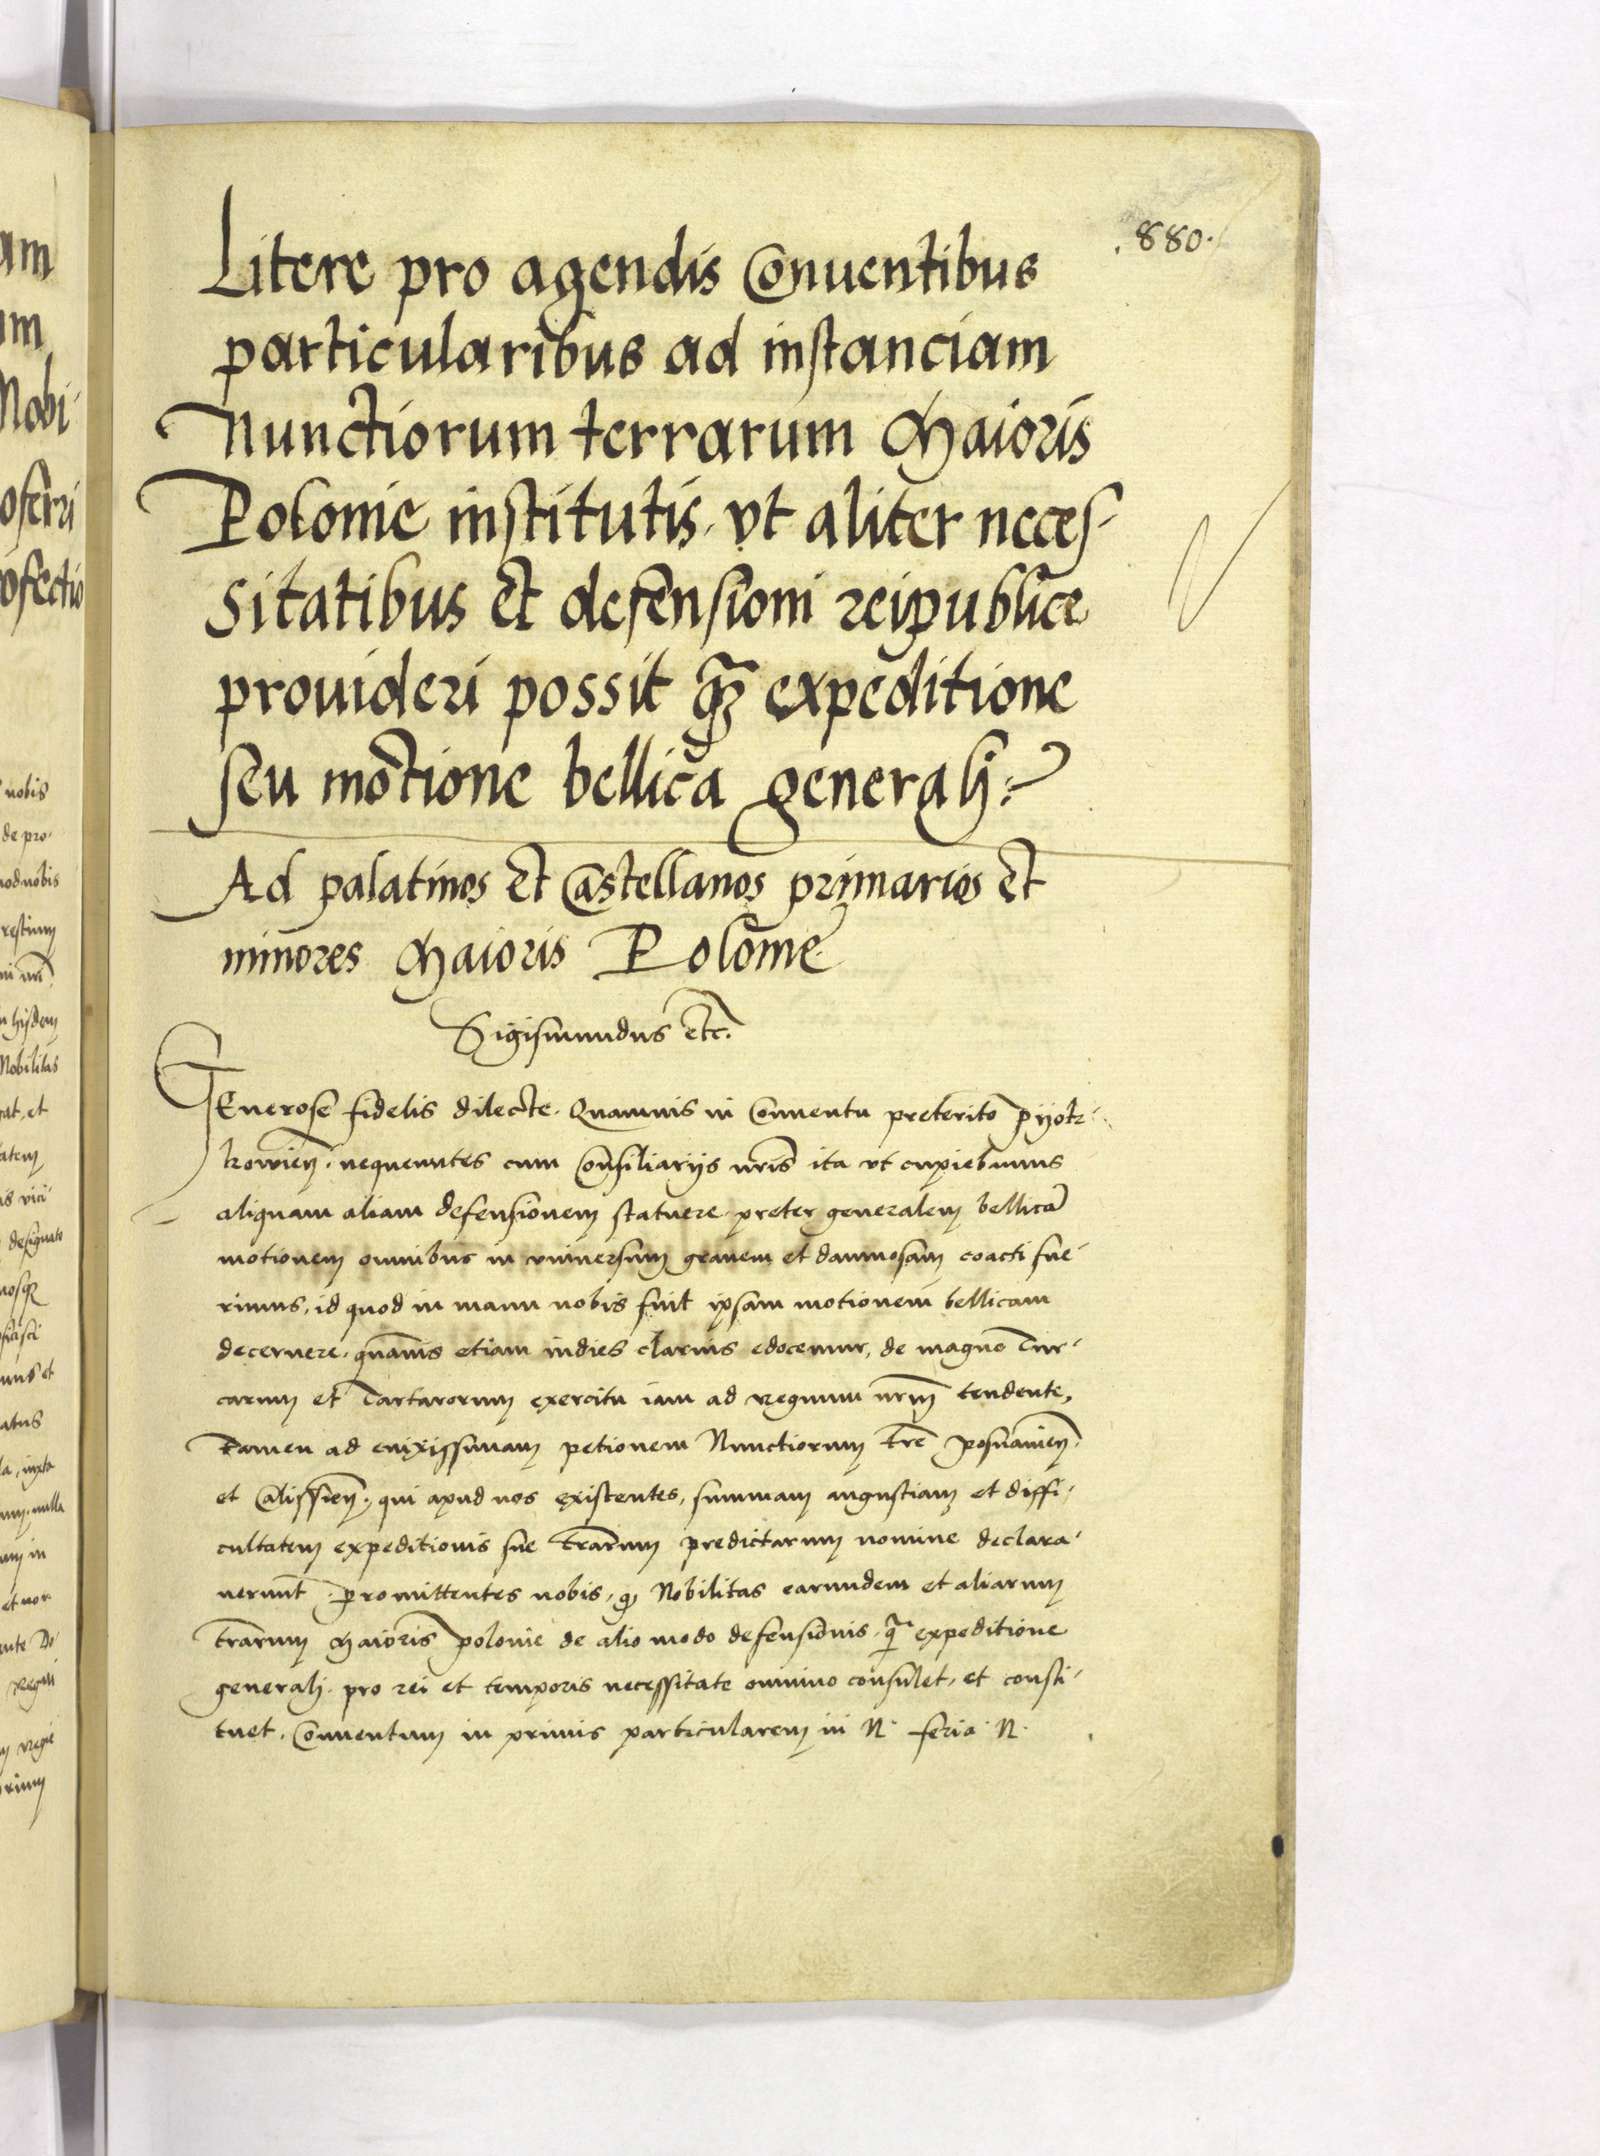 .880.
Litere pro agendis Conuentibus
particularibus ad instanciam
Nunctiorum terrarum Maioris
Polonie institutis. vt aliter neces-
sitatibus et defensioni reipublice
prouideri possit q̃ꝫ expeditione
seu motione bellica generalj
Ad palatinos et Castellanos primarios et
minores Maioris Polonie
Sigismundus etc.
GEnerose fidelis dilecte. Quamuis in Conuentu preterito pyotr-
kowień. nequeuntes cum Consiliarijs nr̃is ita vt cupiebamus
aliquam aliam defensionem statuere preter generalem bellicã
motionem omnibus in vniuersum grauem et damnosam coacti fue-
rimus, id quod in manu nobis fuit ipsam motionem bellicam
decernere. quãuis etiam indies clarius edocemur, de magno Tur-
carum et Tartarorum exercitu iam ad Regnum nr̃m tendente,
Tamen ad enixissimam petionem Nunctiorum tr̃e posnanień.
et Calissień. qui apud nos existentes, summam angustiam et diffi-
cultatem expeditionis sue tr̃arum predictarum nomine declara-
uerunt. promittentes nobis, ꝙ Nobilitas earundem et aliarum
tr̃arum Maioris polonie de alio modo defensionis. q̃ expeditione
generalj. pro rei et temporis necessitate omnino consulet, et consti-
tuet. Conuentum in primis particularem in N. feria N.
am
im
Nobi-
oferri
ofectio
nobis
de pro-
nobis
hijsdem
Nobilitas
et
atem
vici-
designato
et
atus
iuxta
nulla
in
et non
Regni
Regie